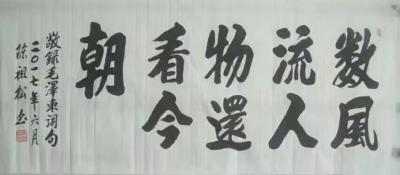 数風
流人
物還
看今
朝
敬録毛澤東詞句
二〇一七年六月
陈祖松书